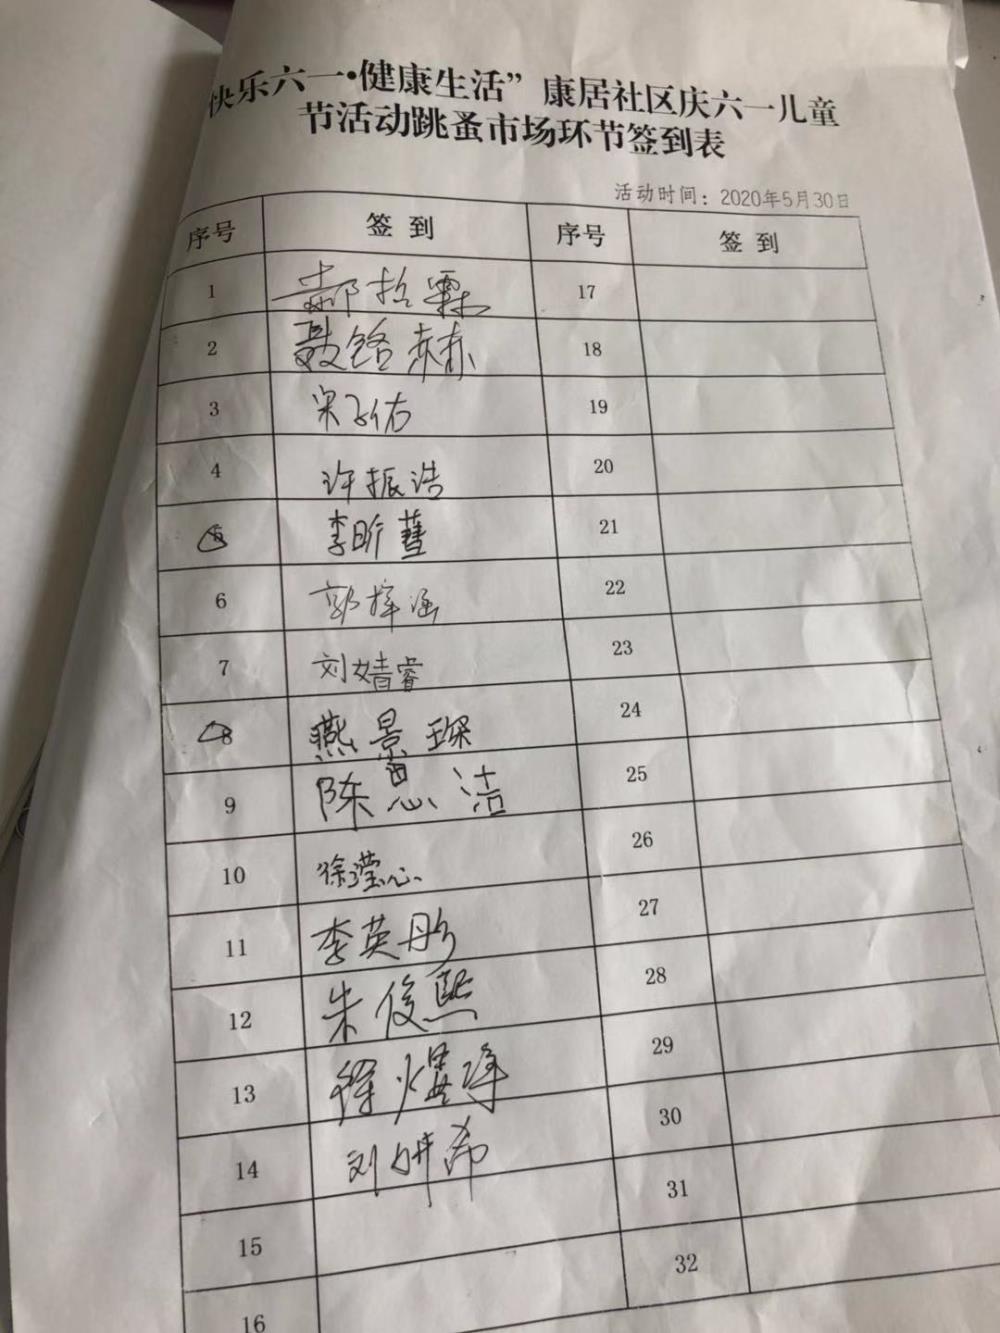 快乐六一•健康生活”康居社区庆六一儿童
节活动跳蚤市场环节签到表
活动时间：2020年5月30日
序号 签到 序号 签到
1 郝拾霖 17
2 聂铭赫 18
3 宋子佑 19
4 许振浩 20
5 李昕蔧 21
6 郭梓涵 22
7 刘婧睿 23
8 燕景琛 24
9 陈思洁 25
10 徐滢心 26
11 李英彤 27
12 朱俊熙 28
13 29
14 刘妍希 30
15 31
16 32